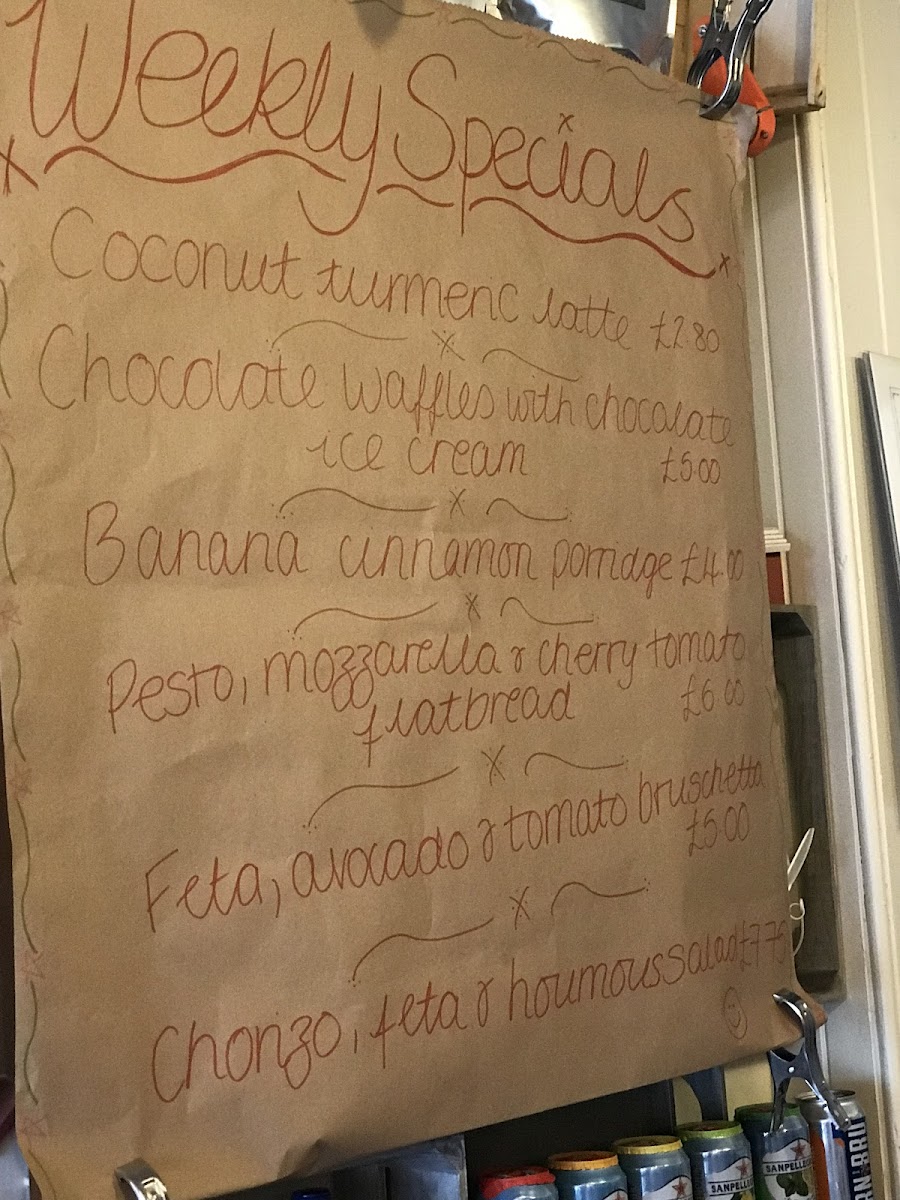 Weekly Specials
Coconut turmeric latte £2.80
Chocolate waffles with chocolate
ice cream £5.00
Banana cinnamon porridge £4.00
Pesto, mozzarella & cherry tomato
flatbread £6.00
Feta, avocado & tomato bruschetta
£5.00
Chorizo, feta & houmous salad £7.75
SANPELLE
RN-BRU